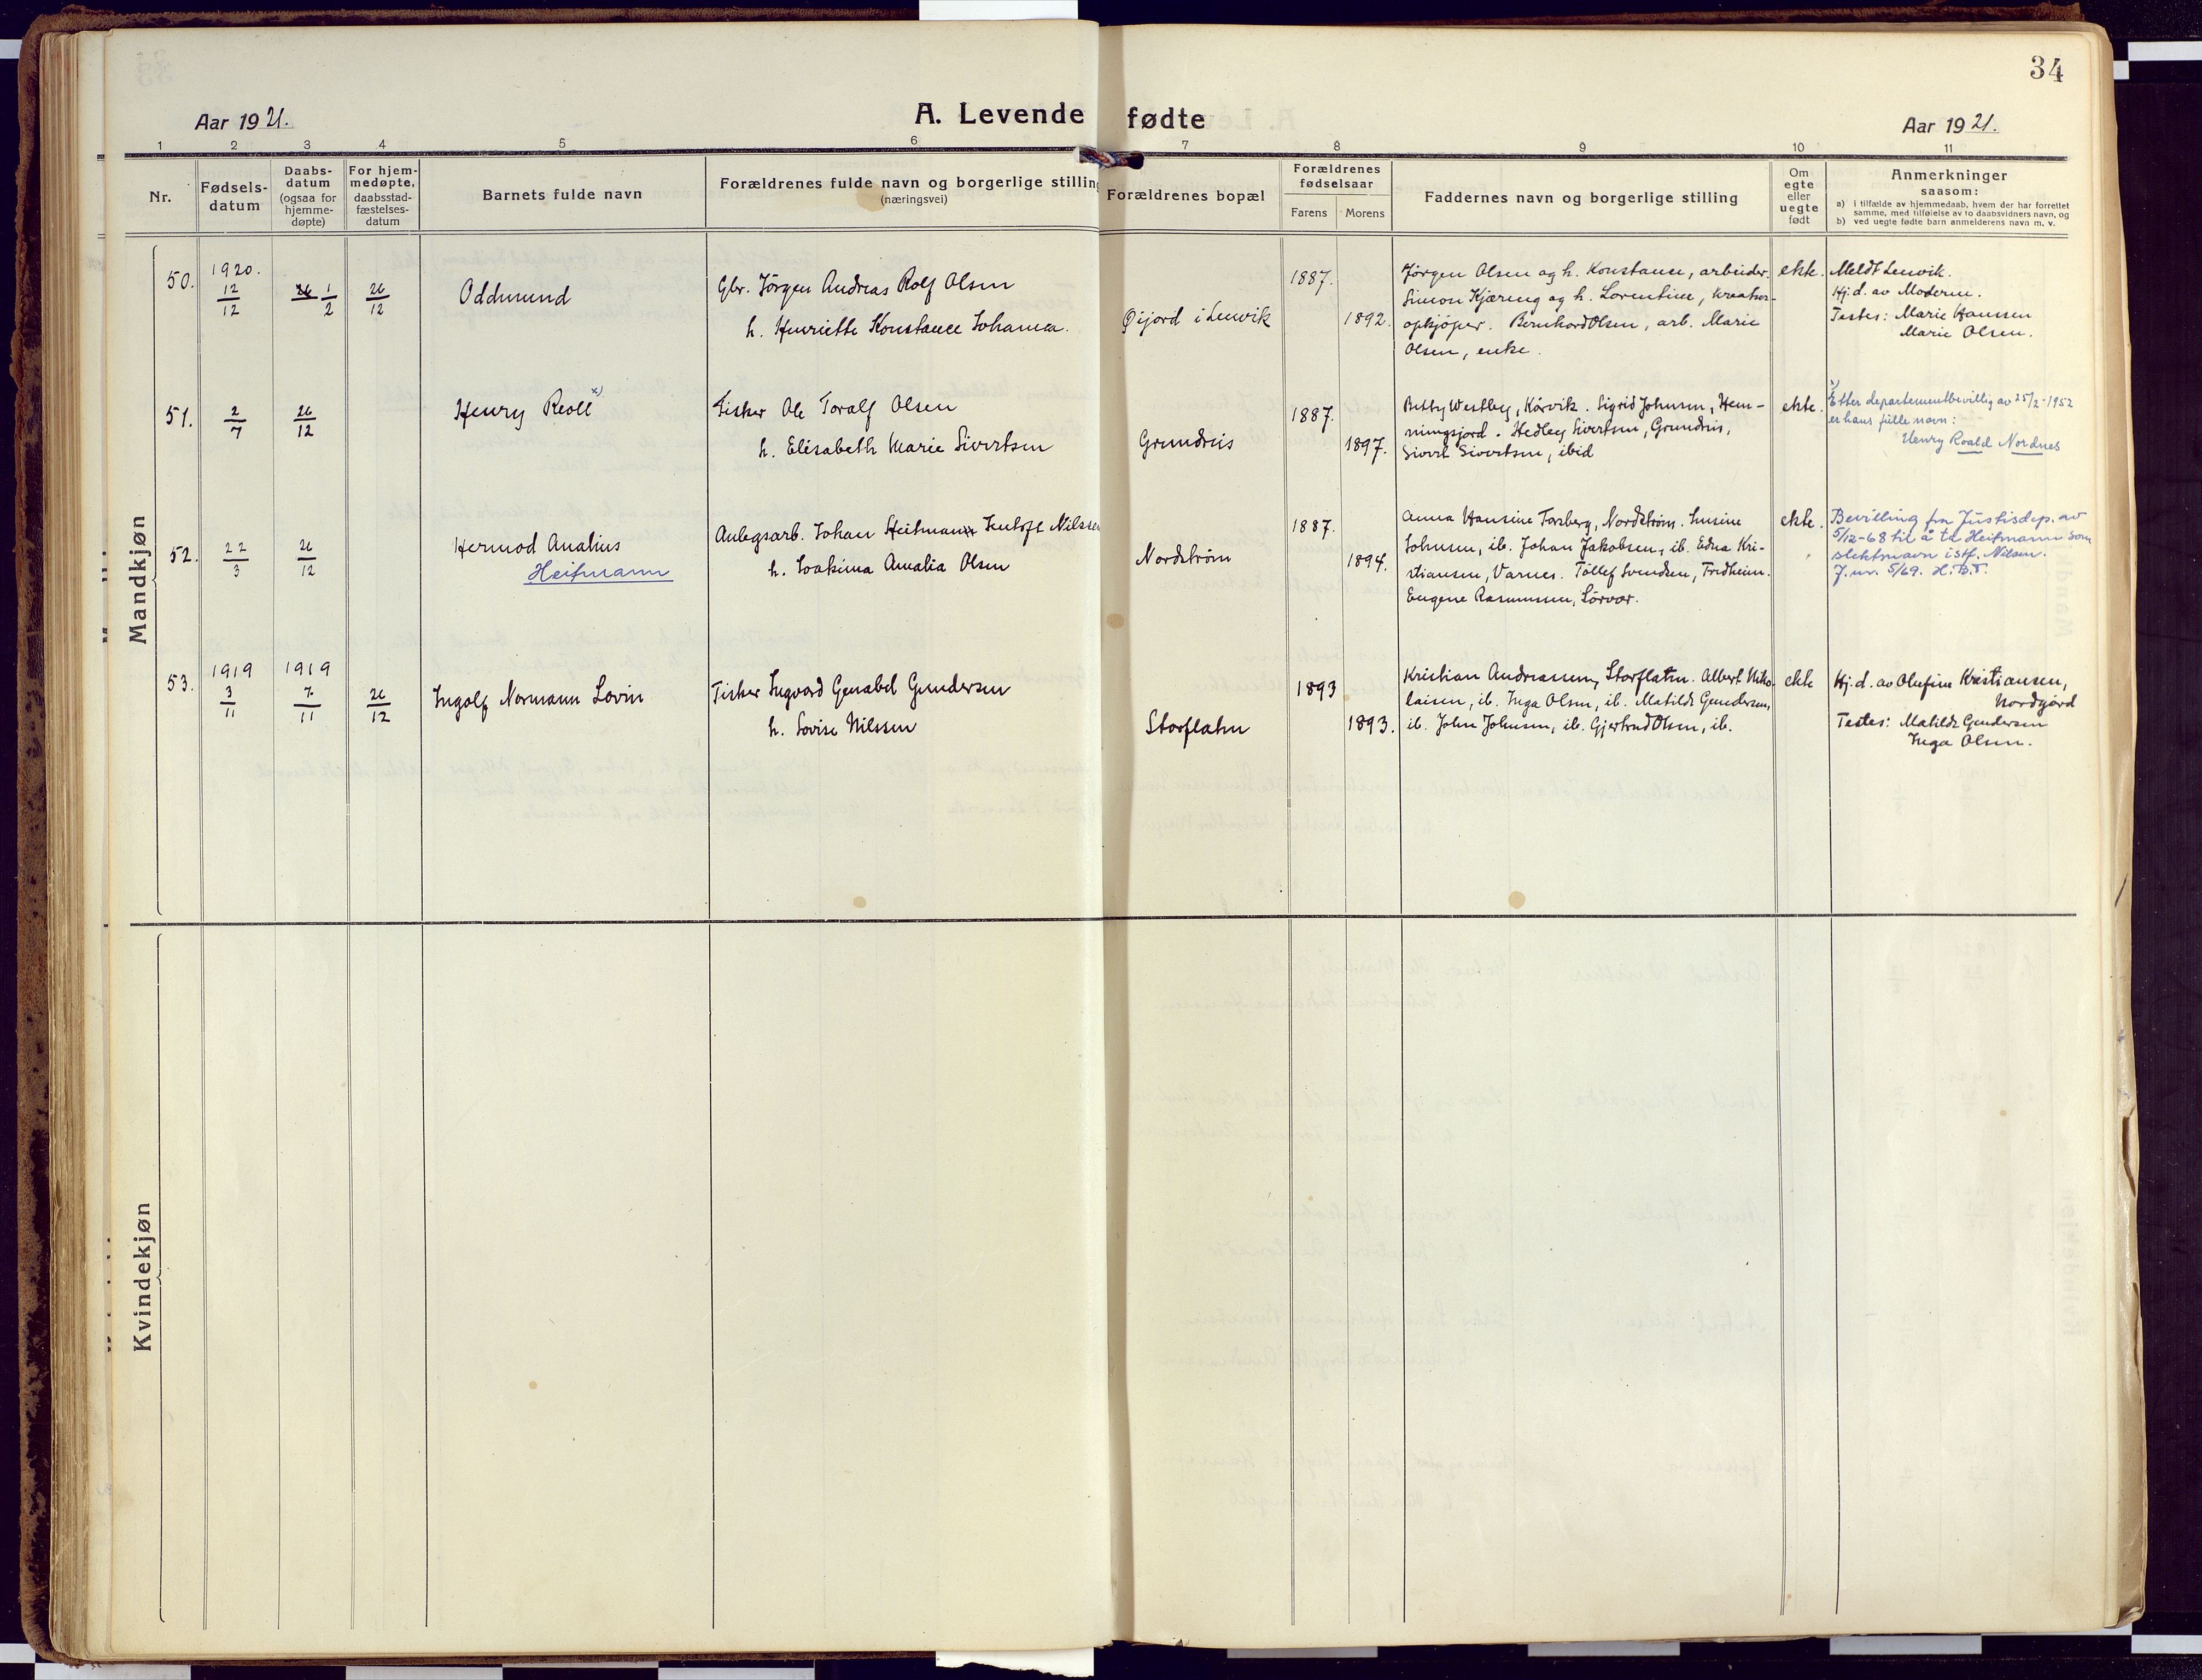 34
Aar 1921.
A. Levende fødte
Aar 1921.
1 2 3 4 5 6 7 8 9 10 11
Nr.
Fødsels-
datum
Daabs-
datum
(ogsaa for
hjemme-
døpte)
For hjem-
medøpte,
daabsstad-
fæstelses-
datum
Barnets fulde navn
Forældrenes fulde navn og borgerlige stilling
(næringsvei)
Forældrenes bopæl
Forældrenes
fødselsaar
Farens Morens
Faddernes navn og borgerlige stilling
Om
egte
eller
uegte
født
Anmerkninger
saasom:
a) i tilfælde av hjemmedaab, hvem der har forrettet
samme, med tilføielse av to daabsvidners navn, og
b) ved uegte fødte barn anmelderens navn m. v.
Mandkjøn
50.
1920.
12/12
26 1/2
26/12
Oddmund
Gbr. Jörgen Andreas Rolf Olsen
h. Henriette Konstance Johansa.
Øijord i Lenvik
1887.
1892.
Jørgen Olsen og h. Konstanse, arbeider.
Simon Kjæreng og h. Lorentine, kreatur-
opkjøper. Bernhard Olsen, arb. Marie
Olsen, enke.
ekte.
Meldt Lenvik.
Hj.d. av Moderen.
Testes: Marie Hansen
Marie Olsen.
51.
2/7
26/12
Henry Reoll x)
Fisker Ole Toralf Olsen
h. Elisabeth Marie Sivertsen
Grundnes
1887.
1897.
Betty Westby, Kårvik. Sigrid Johnsen, Hem-
ningsjord. Hedley Sivertsen, Grundnes,
Sivert Sivertsen, ibid
ekte.
x) Etter departementbevillig av 25/2-1952
er hans fulle navn:
Henry Roald Nordnes
52.
22/3
26/12
Hermod Analius
Heitmann
Anlegsarb. Johan Heitmann Jentoft Nilssen
h. Joakima Amalia Olsen
Nordstrøm
1887.
1894.
Anna Hansine Forsberg, Nordstrøm. Lusine
Johnsen, ib. Johan Jakobsen, ib. Edna Kri-
stiansen, Varnes. Tollef Svendsen, Fredheim.
Eugene Rasmussen, Sörvær.
ekte.
Bevilling fra Justisdep. av
5/12-68 til å ta Heitmann som
slektsnavn istf. Nilsen.
J.nr. 5/69. H.B.T.
53.
1919
3/11
1919
7/11
26/12
Ingolf Normann Lovin
Fisker Ingvard Genabel Gundersen
h. Lovise Nilssen
Storflatn
1893
1893.
Kristian Andreassen, Storflatn. Albert Niko-
laisen, ib. Inga Olsen, ib. Matilde Gundersen,
ib. John Johnsen, ib. Gjertrud Olsen, ib.
ekte
Hj.d. av Olufine Kristiansen,
Nordgård
Testes: Matilde Gundersen
Inga Olsen.
Kvindekjøn